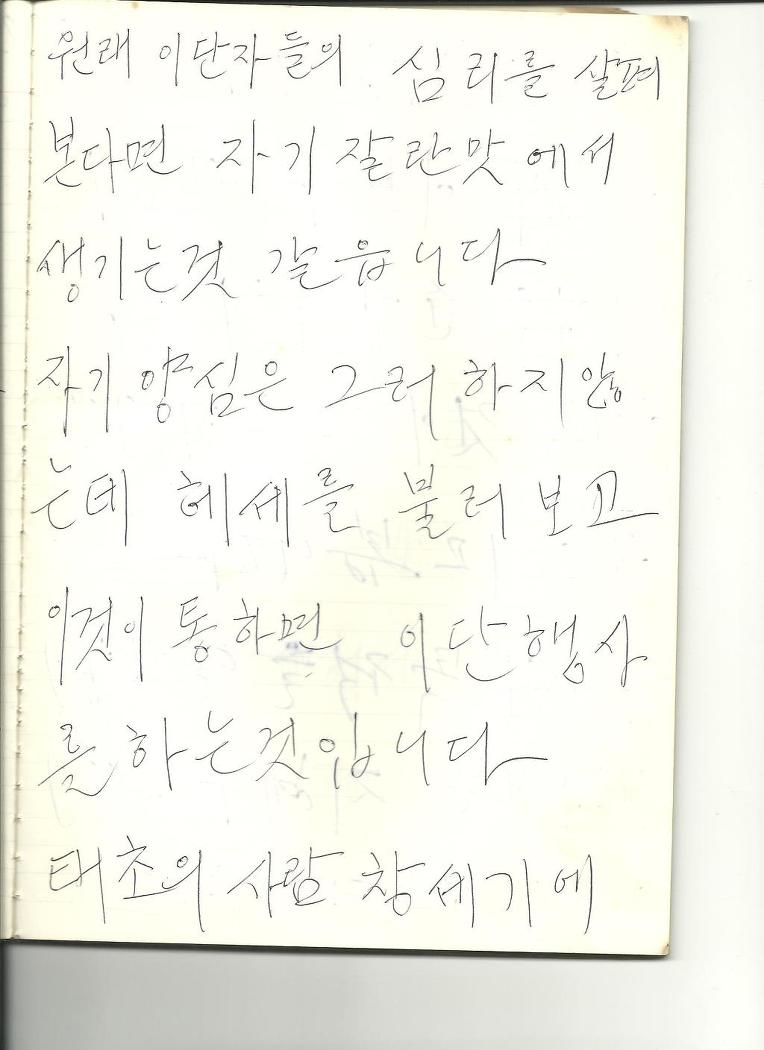 원래 이단자들의 심리를 살펴
본다면 자기 잘란맛에서
생기는것 같읍니다
자기 양심은 그러하지않
는데 헤세를 불러보고
이것이 통하면 이단행사
를하는것입니다
태초의 사람 창세기에